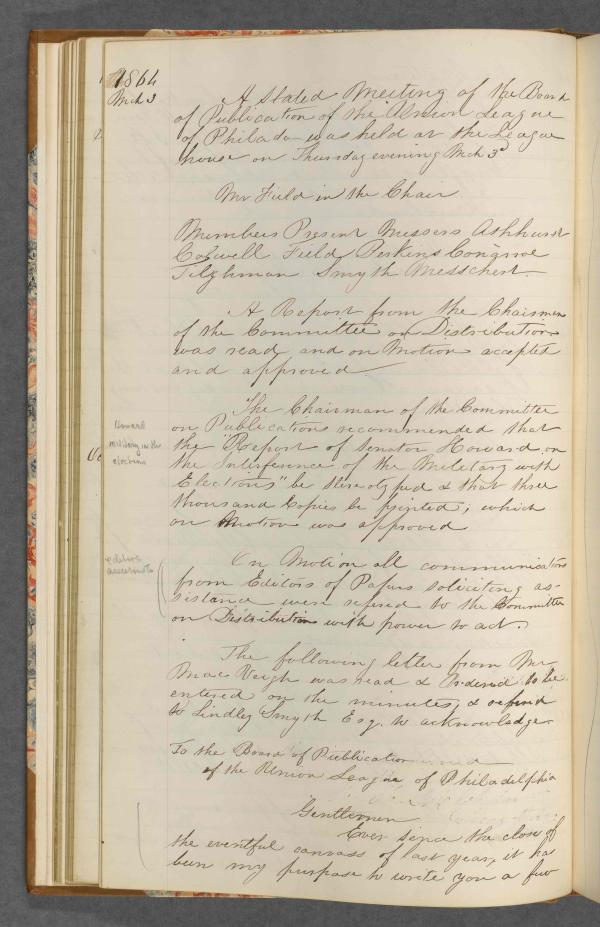 1864
Mch 3
A Stated Meeting of the Board
of Publication of the Union League
of Philada was held at the League
house on Thursday evening Mch 3d
Mr Field in the Chair
Members Present Messers Ashhurst
Colwell Field Perkins Congrove
Tilghman Smyth Messchert
A Report from the Chairman
of the Committee on Distribution
was read and on Motion accepted
and approved
The Chairman of the Committee
on Publications recommended that
Howard
military in the
elections
the "Report of Senator Howard on
the Interference of the Military with
Elections" be stereotyped & that three
thousand Copies be printed; which
on Motion was approved
On Motion all communications
Editors
from Editors of Papers soliciting as-
sistance were refered to the Committee
on Distribution with power to act.
The following letter from Mr
MacVeigh was read & Ordered to be
entered on the minutes, & referred
to Lindley Smyth Esq. to acknowledge
To the Board of Publication
of the Union League of Philadelphia
Gentlemen
Ever since the close of
the eventful canvass of last year, it has
been my purpose to wrote you a few